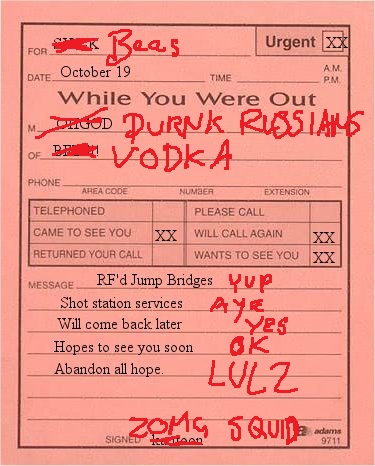 FOR Beas Urgent XX
DATE October 19 TIME A.M. P.M.
While You Were Out
M OHGOD DURNK RUSSIANS
OF VODKA
PHONE
AREA CODE NUMBER EXTENSION
TELEPHONED PLEASE CALL
CAME TO SEE YOU XX WILL CALL AGAIN XX
RETURNED YOUR CALL WANTS TO SEE YOU XX
MESSAGE RF'd Jump Bridges YUP
Shot station services AYE
Will come back later YES
Hopes to see you soon OK
Abandon all hope. LULZ
ZOMG SQUID
SIGNED adams
9711